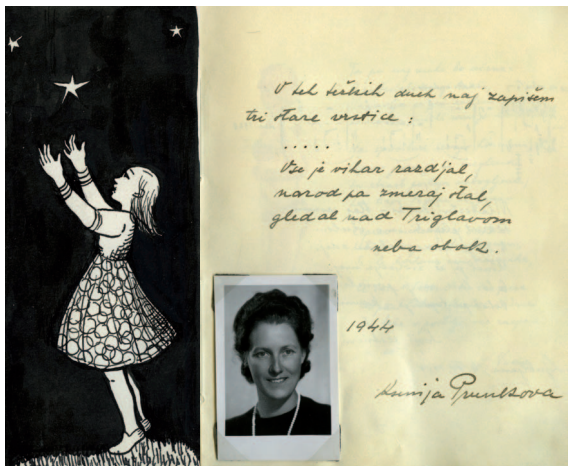 V teh težkih dneh naj zapišem
tri stare vrstice :
.....
Vse je vihar razdjal,
narod pa zmeraj stal,
gledal nad Triglavom
neba obok.
1944